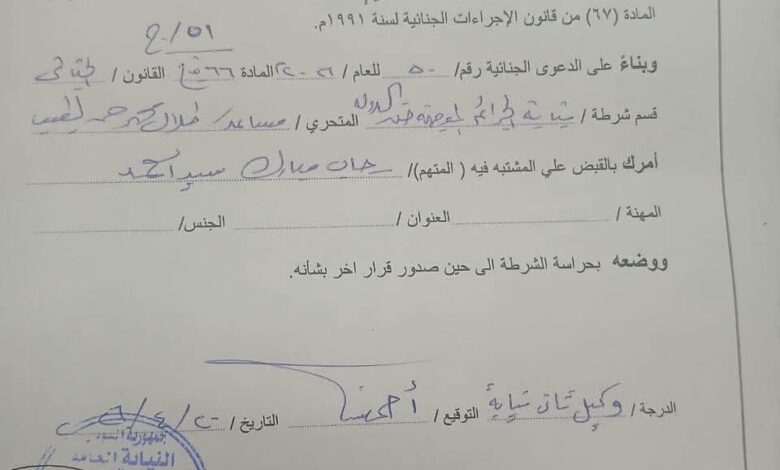 المادة (٦٧) من قانون الإجراءات الجنائية لسنة ١٩٩١م.
٥١/ج
وبناءً على الدعوى الجنائية رقم/ ٥٠ للعام / ٢٠٢٦ المادة ٦٦ القانون / الجنائي
قسم شرطة / نيابة الجرائم الموجهة ضد الدولة المتحري / مساعد طلال
أمرك بالقبض علي المشتبه فيه ( المتهم)/ رحاب مبارك سيد احمد
المهنة / العنوان / الجنس/
ووضعه بحراسة الشرطة الى حين صدور قرار اخر بشأنه.
الدرجة / وكيل ثاني نيابة التوقيع / التاريخ /
جمهورية السودان
النيابة العامة